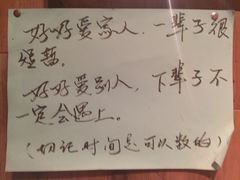 好好爱家人，一辈子很
短暂。
好好爱别人，下辈子不
一定会遇上。
（切记时间是可以数的）